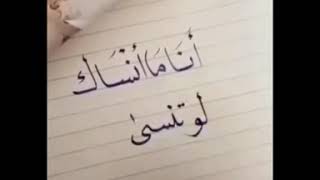 أَنَا مَا أَنْسَاكْ
لو تنسىٰ